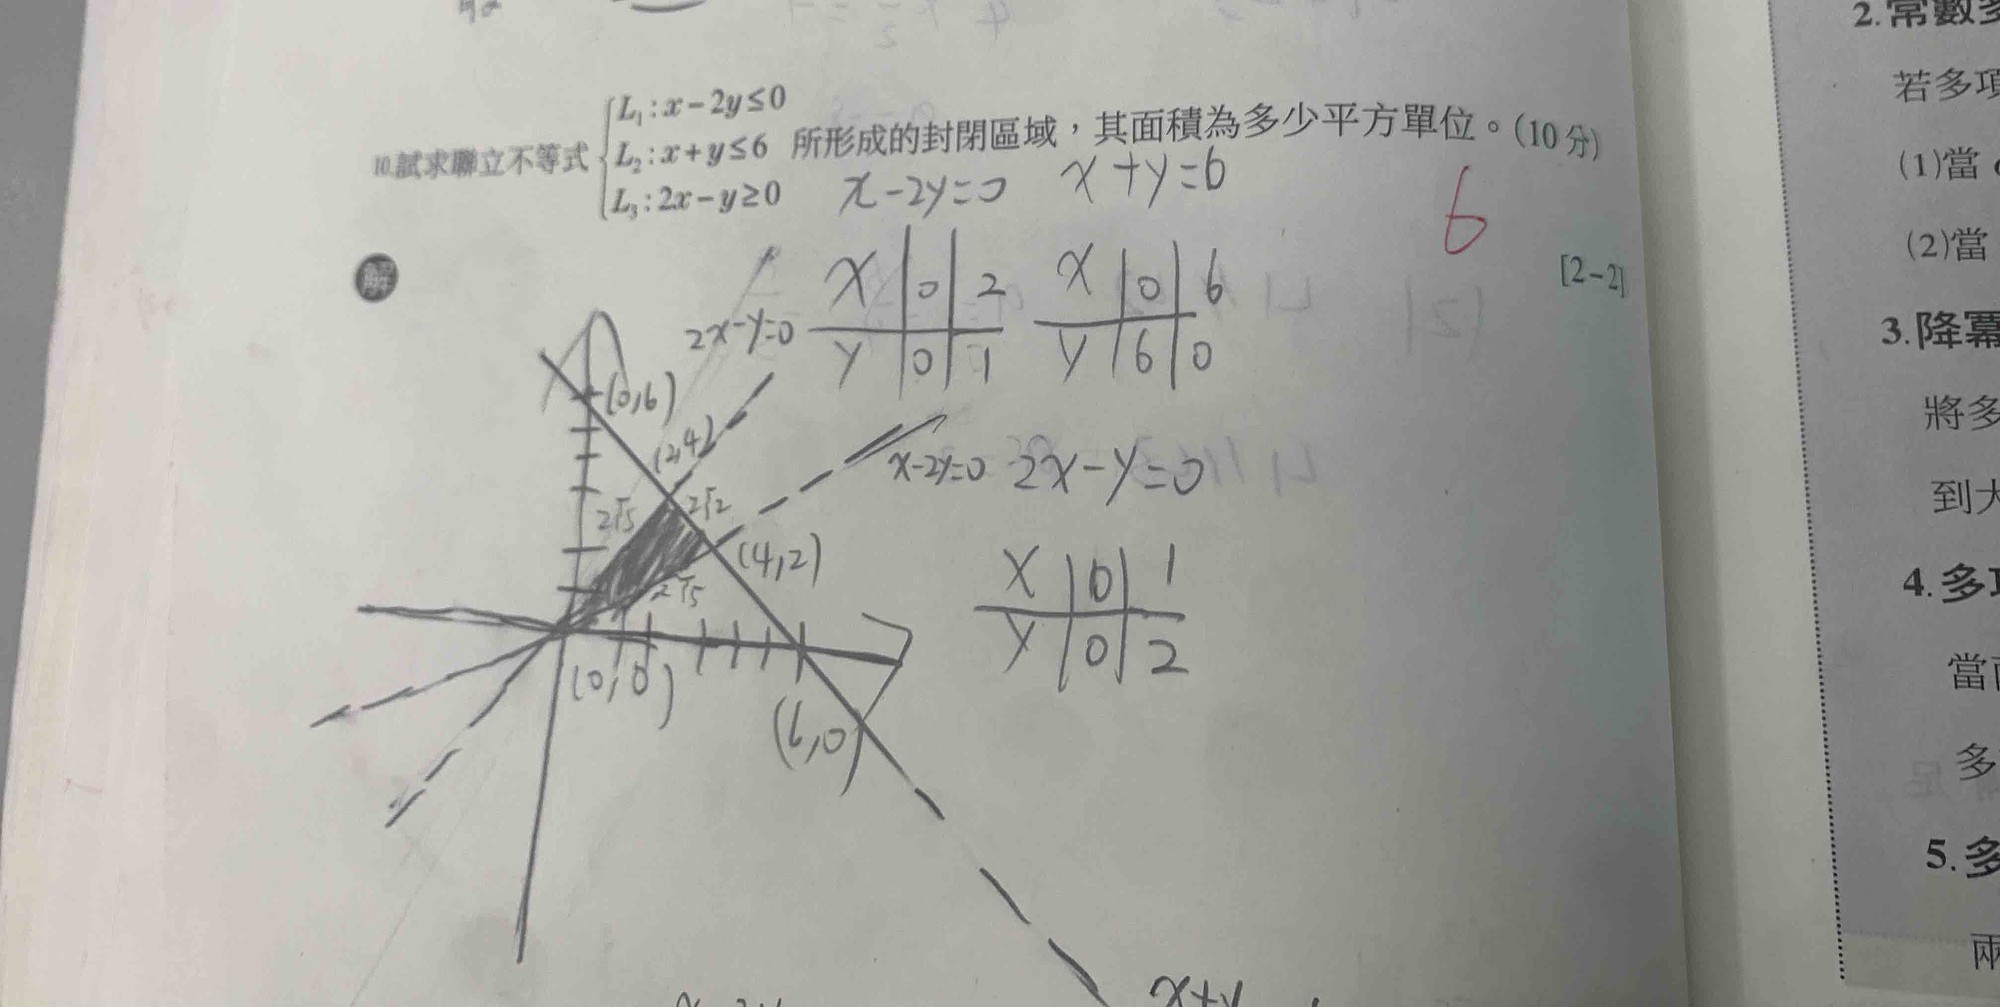 L₁:x-2y≤0
10.試求聯立不等式 L₂:x+y≤6 所形成的封閉區域,其面積為多少平方單位。(10分)
L₃:2x-y≥0
x-2y=0 x+y=6
6
[2-2]
解
x 0 2 x 0 6
y 0 1 y 6 0
2x-y=0
(0,6)
(2,4)
x-2y=0 2x-y=0
2√5 2√2
(4,2)
2√5
x 0 1
y 0 2
(0,0)
(6,0)
x+y
2.常數多
若多項
(1)當
(2)當
3.降冪
將多
到大
4.多項
當
多
5.多
兩